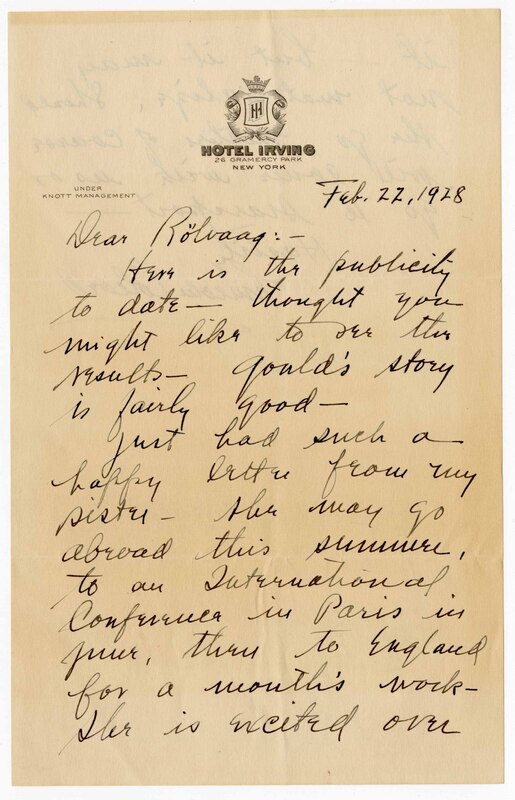 HOTEL IRVING
26 GRAMERCY PARK
NEW YORK
UNDER
KNOTT MANAGEMENT
Feb. 22, 1928
Dear Rölvaag:-
Here is the publicity
to date— thought you
might like to see the
results— Gould's story
is fairly good—
Just had such a
happy letter from my
sister— She may go
abroad this summer,
to an International
Conference in Paris in
June, then to England
for a month's work—
She is excited over